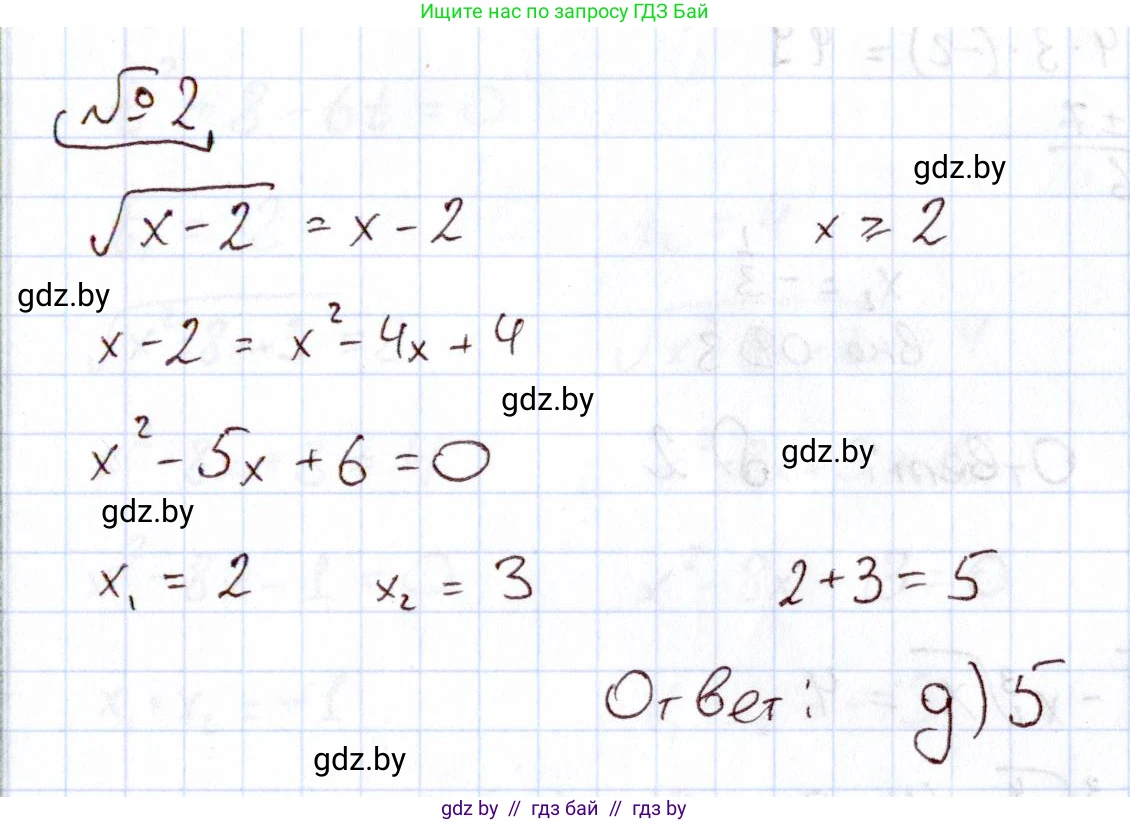 Ищите нас по запросу ГДЗ Бай
№ 2
√(x-2) = x - 2
x ≥ 2
gdz.by
gdz.by
x - 2 = x² - 4x + 4
gdz.by
x² - 5x + 6 = 0
gdz.by
gdz.by
x₁ = 2 x₂ = 3
2 + 3 = 5
Ответ: д) 5
gdz.by
gdz by // гдз бай // гдз by